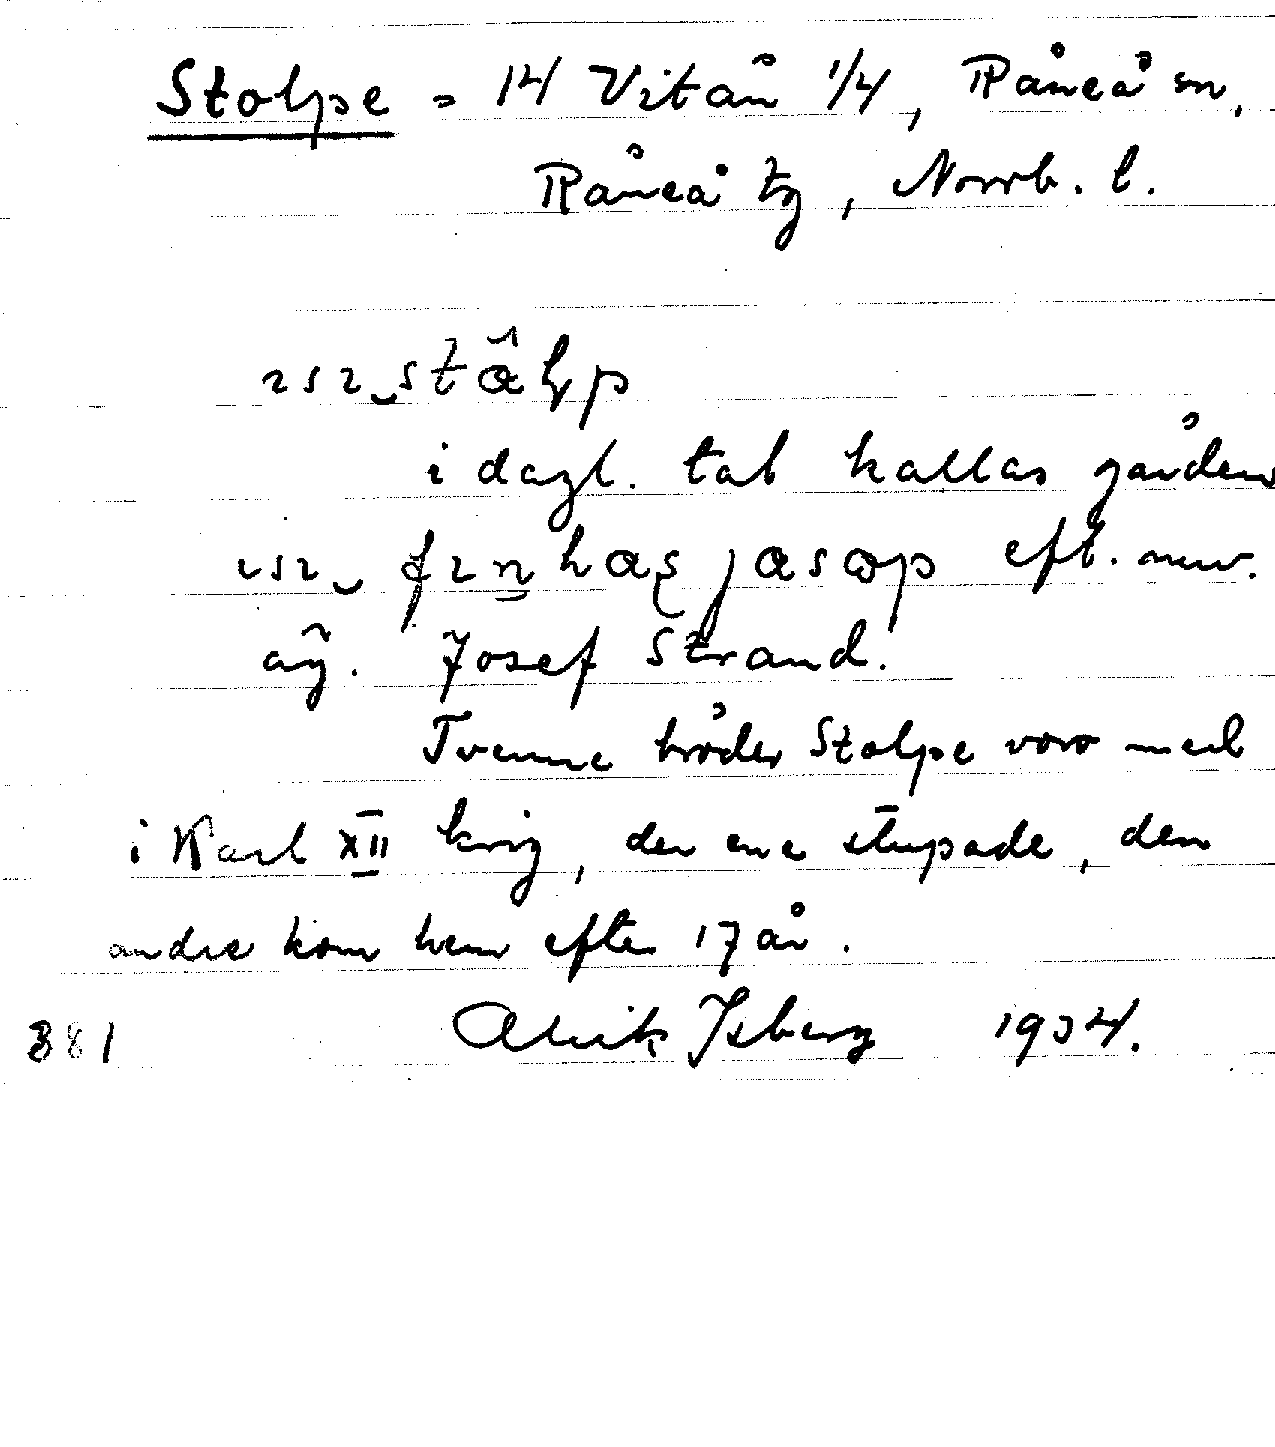 Stolpe = 14 Vitån 1/4, Råneå sn,
Råneå tg, Norrb. l.
i dagl. tal kallas gården
eft. nuv.
äg. Josef Strand.
Tvenne bröder Stolpe voro med
i Karl XII krig, den ene stupade, den
andre kom hem efter 17 år.
Alrik Isberg 1934.
381